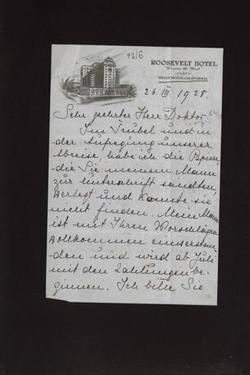 93/6
ROOSEVELT HOTEL
HOLLYWOOD, CALIFORNIA
26. III 1928.
Sehr geehrter Herr Doktor,
Im Trubel und in
der Aufregung unserer
Abreise, habe ich die Papiere,
die Sie meinem Mann
zur Unterschrift sandten,
verlegt und konnte sie
nicht finden. Mein Mann
ist mit Ihren Vorschlägen
vollkommen einverstan
den und wird ab Juli
mit den Zahlungen be
ginnen. Ich bitte Sie